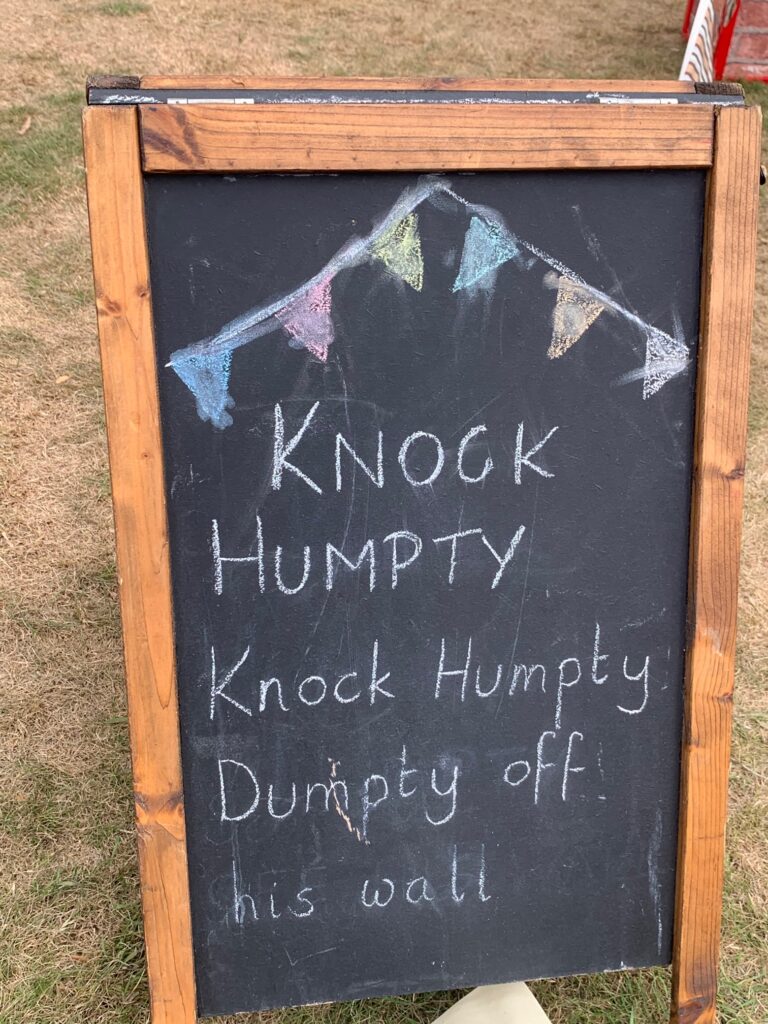 KNOCK
HUMPTY
Knock Humpty
Dumpty off
his wall